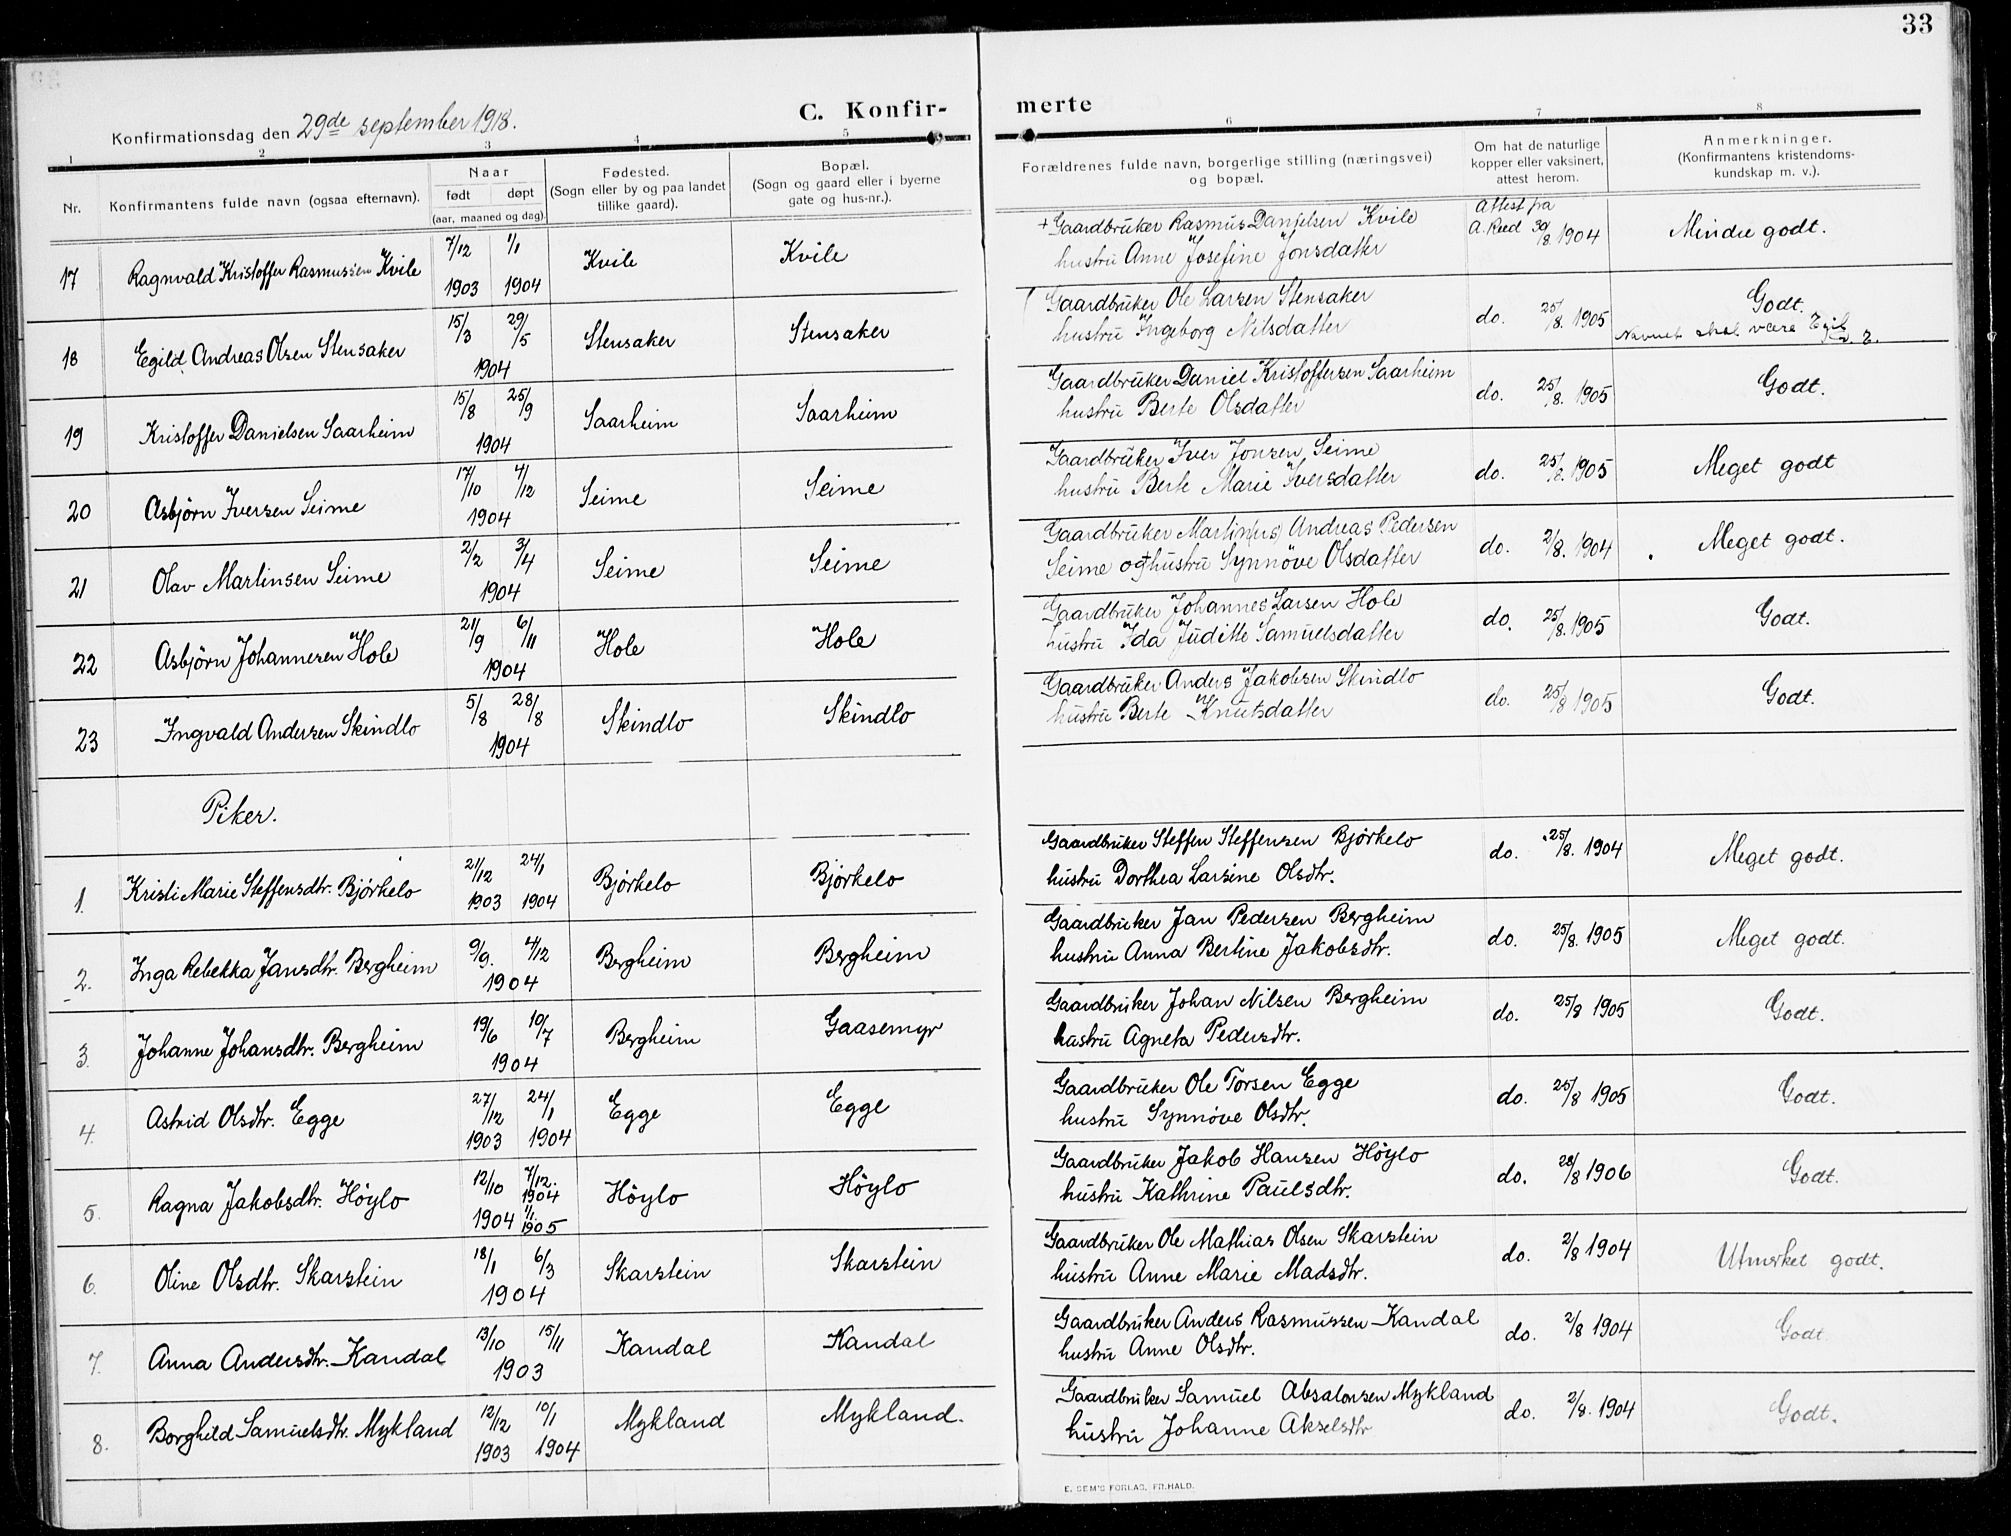 33
C. Konfir- merte
Konfirmationsdag den 29de september 1918.
1 2 3 4 5 6 7 8
Nr. Konfirmantens fulde navn (ogsaa efternavn). Naar født døpt (aar, maaned og dag). Fødested. (Sogn eller by og paa landet tillike gaard). Bopæl. (Sogn og gaard eller i byerne gate og hus-nr.). Forældrenes fulde navn, borgerlige stilling (næringsvei) og bopæl. Om hat de naturlige kopper eller vaksinert, attest herom. Anmerkninger. (Konfirmantens kristendoms- kundskap m. v.).
17 Ragnvald Kristoffer Rasmussen Kvile 7/12 1903 1/1 1904 Kvile Kvile + Gaardbruker Rasmus Danielsen Kvile Attest fra A. Reed 30/8 1904 Mindre godt.
hustru Anne Josefine Jonsdatter
18 Egild Andreas Olsen Stensaker 15/3 29/5 1904 Stensaker Stensaker Gaardbruker Ole Larsen Stensaker do. 25/8. 1905 Godt.
hustru Ingeborg Nilsdatter Navnet skal være Egil
19 Kristoffer Danielsen Saarheim 15/8 25/9 1904 Saarheim Saarheim Gaardbruker Daniel Kristoffersen Saarheim do. 25/8. 1905 Godt.
hustru Berte Olsdatter
20 Asbjørn Iversen Seime 17/10 4/12 1904 Seime Seime Gaardbruker Iver Jonsen Seime do. 25/8. 1905 Meget godt
hustru Berte Marie Iversdatter
21 Olav Martinsen Seime 2/2 3/4 1904 Seime Seime Gaardbruker Martin(us) Andreas Pedersen do. 2/8. 1904 Meget godt.
Seime og hustru Synnöve Olsdatter
22 Asbjörn Johannesen Hole 21/9 6/11 1904 Hole Hole Gaardbruker Johannes Larsen Hole do. 25/8. 1905 Godt.
hustru Ida Juditte Samuelsdatter
23 Ingvald Andersen Skindlo 5/8 28/8 1904 Skindlo Skindlo Gaardbruker Anders Jakobsen Skindlo do. 25/8 1905 Godt.
hustru Berte Knutsdatter
Piker.
1. Kristi Marie Steffensdtr. Bjørkelo 21/12 1903 24/1 1904 Bjørkelo Bjørkelo Gaardbruker Steffen Steffensen Bjørkelo do. 25/8. 1904 Meget godt.
hustru Dorthea Larsine Olsdtr.
2. Inga Rebekka Jansdtr. Bergheim 9/9. 4/12 1904 Bergheim Bergheim Gaardbruker Jan Pedersen Bergheim do. 25/8. 1905 Meget godt.
hustru Anna Bertine Jakobsdtr.
3. Johanne Johansdtr. Bergheim 19/6 10/7 1904 Bergheim Gaasemyr Gaardbruker Johan Nilsen Bergheim do. 25/8 1905 Godt.
hustru Agneta Pedersdtr.
4. Astrid Olsdtr. Egge 27/12 1903 24/1 1904 Egge Egge Gaardbruker Ole Torsen Egge do. 25/8 1905 Godt.
hustru Synnöve Olsdtr.
5. Ragna Jakobsdtr. Höylo 12/10 1904 7/12. 1904 1/1. 1905 Höylo Höylo Gaardbruker Jakob Hansen Höylo do. 28/8 1906 Godt.
hustru Kathrine Paulsdtr.
6. Oline Olsdtr. Skarstein 18/1 6/3 1904 Skarstein Skarstein Gaardbruker Ole Mathias Olsen Skarstein do. 2/8 1904 Utmerket godt.
hustru Anne Marie Madsdtr.
7. Anna Andersdtr. Kandal 13/10 15/11 1903 Kandal Kandal Gaardbruker Anders Rasmussen Kandal do. 2/8 1904 Godt.
hustru Anne Olsdtr.
8. Borghild Samuelsdtr. Mykland 12/12 1903 10/1 1904 Mykland Mykland. Gaardbruker Samuel Absalonsen Mykland do. 2/8. 1904 Godt.
hustru Johanne Akselsdtr
E. SEM'S FORLAG, FR.HALD.